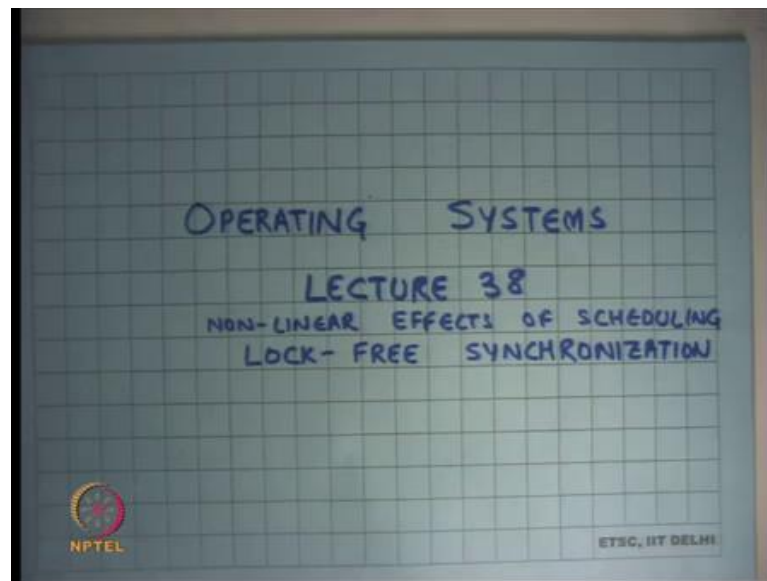 OPERATING SYSTEMS
LECTURE 38
NON-LINEAR EFFECTS OF SCHEDULING
LOCK-FREE SYNCHRONIZATION
NPTEL
ETSC, IIT DELHI